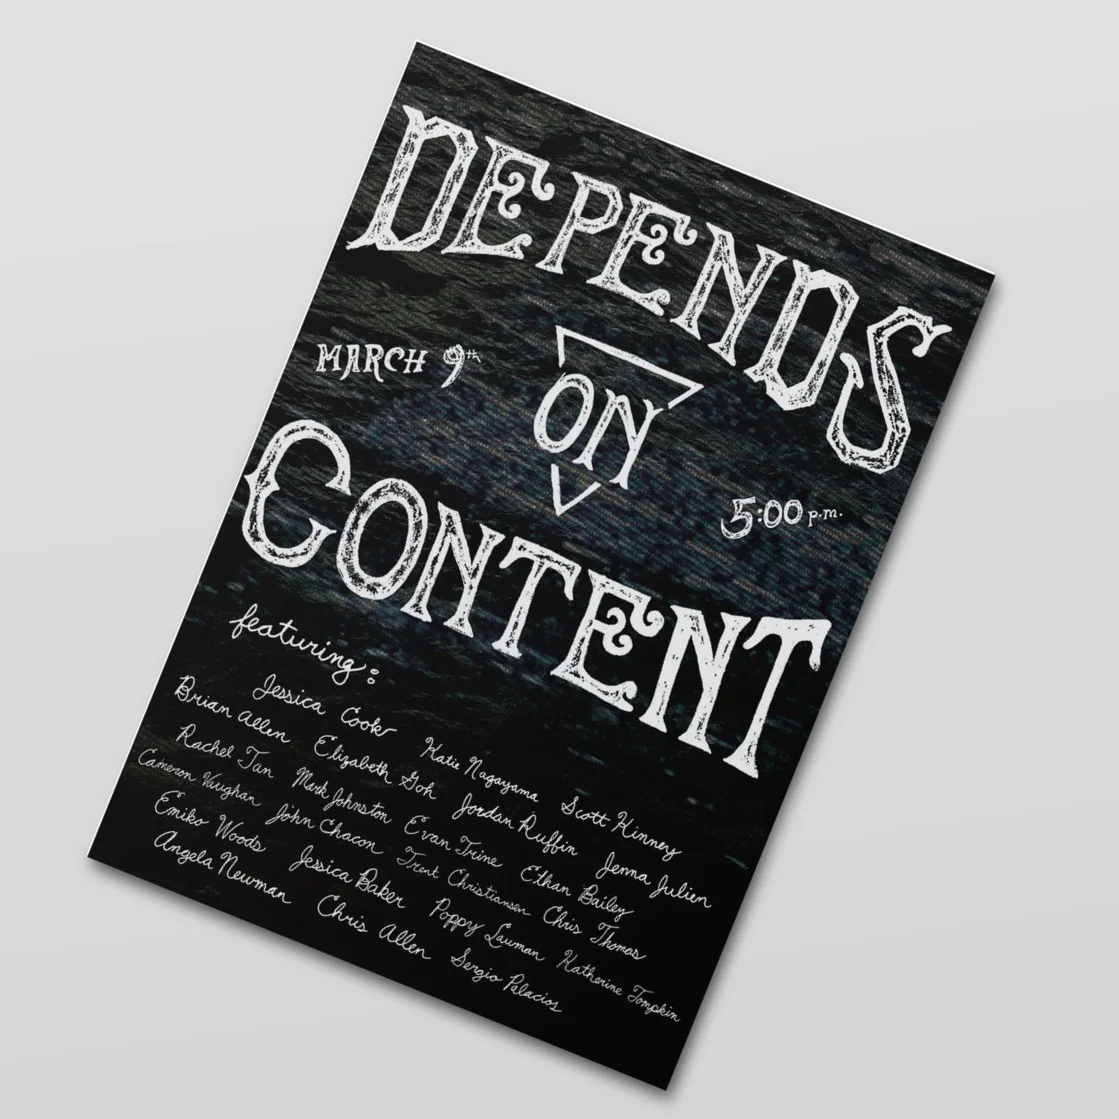 DEPENDS
MARCH 9th
ON
5:00 p.m.
CONTENT
featuring:
Jessica Cook Katie Nagayama Scott Kinney
Brian Allen Elizabeth Goh Jordan Ruffin Jenna Julien
Rachel Tan Mark Johnston Evan Trine Ethan Bailey
Cameron Vaughan John Chacon Trent Christiansen Chris Thomas
Emiko Woods Jessica Baker Poppy Lauman Katherine Tompkin
Angela Newman Chris Allen Sergio Palacios